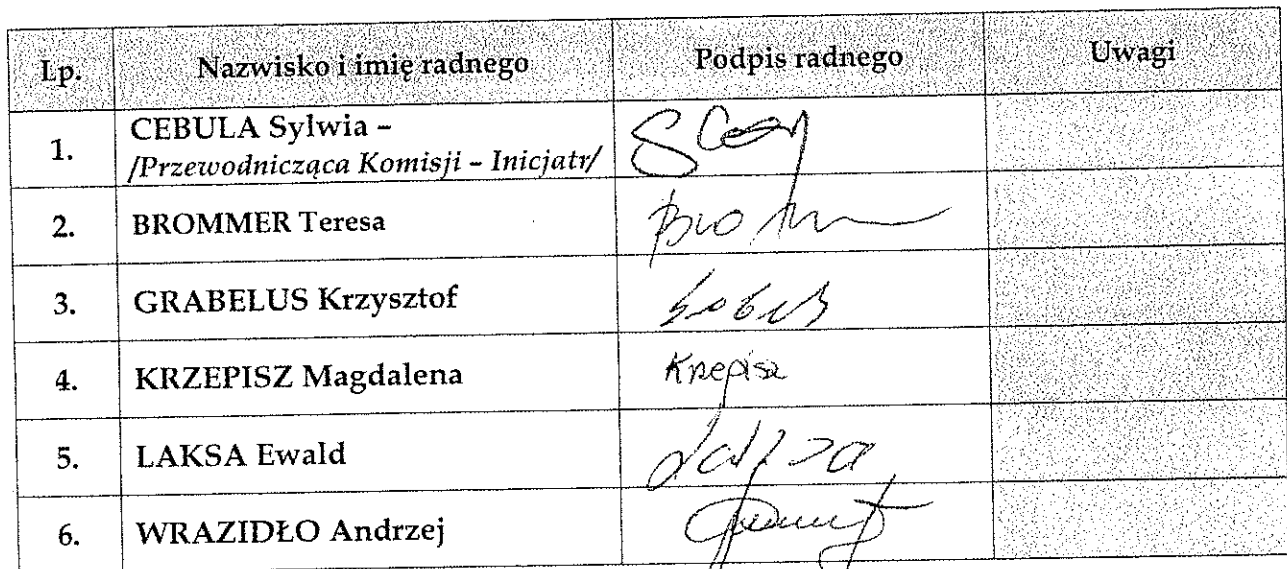 Lp. Nazwisko i imię radnego Podpis radnego Uwagi
1. CEBULA Sylwia –
/Przewodnicząca Komisji – Inicjatr/
2. BROMMER Teresa
3. GRABELUS Krzysztof
4. KRZEPISZ Magdalena Krzepisz
5. LAKSA Ewald
6. WRAZIDŁO Andrzej